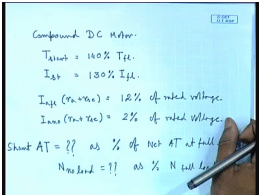 Compound DC Motor.
T start = 140% T fl.
I st = 130% I fl.
I nfl (ra + rse) = 12% of rated voltage.
I nno (ra + rse) = 2% of rated voltage.
Shunt AT = ?? as % of Net AT at full
N no load = ?? as % N full load